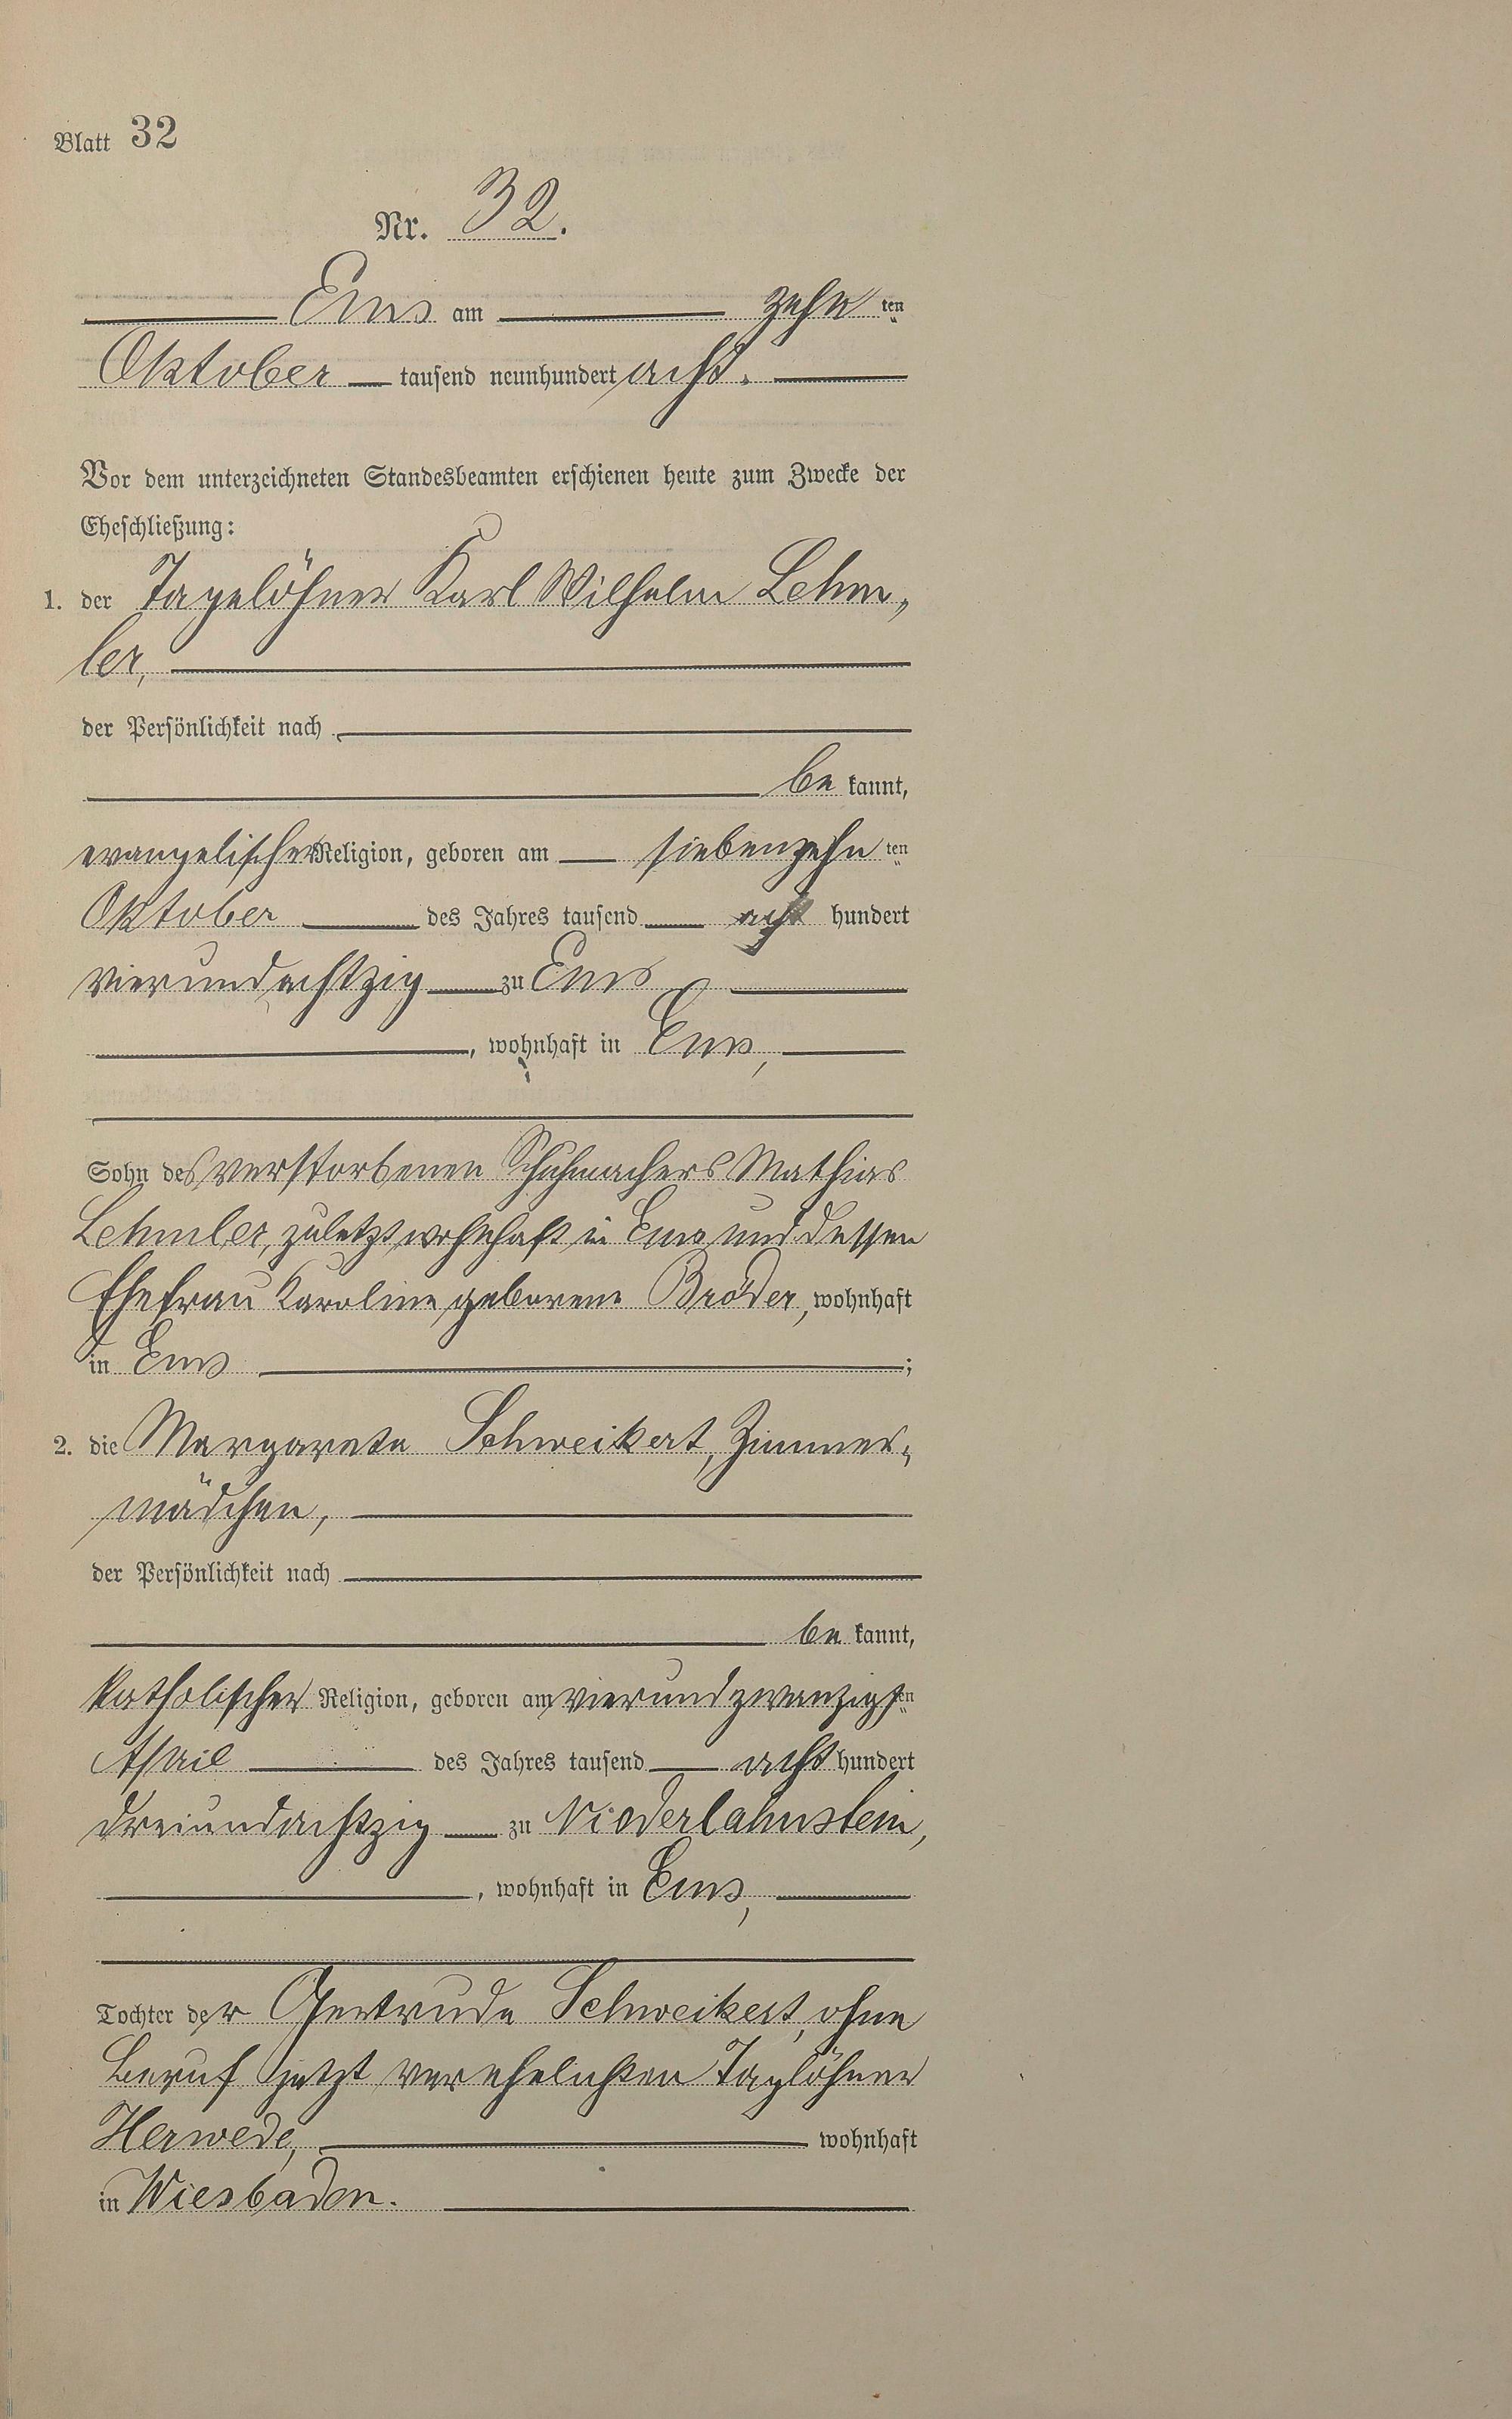 Blatt 32
Nr. 32.
Ems am zehnten
Oktober tausend neunhundert acht.
Vor dem unterzeichneten Standesbeamten erschienen heute zum Zwecke der
Eheschließung:
1. der Tagelöhner Karl Wilhelm Lehm„
ler,
der Persönlichkeit nach
be kannt,
evangelischer Religion, geboren am siebenzehnten
Oktober des Jahres tausend acht hundert
vierundachtzig zu Ems
, wohnhaft in Ems,
Sohn des verstorbenen Schuhmachers Mathias
Lehmler, zuletzt wohnhaft in Ems und dessen
Ehefrau Karoline geborene Bröder, wohnhaft
in Ems ;
2. die Margareta Schweikert, Zimmer„
mädchen,
der Persönlichkeit nach
be kannt,
katholischer Religion, geboren am vierundzwanzigsten
April des Jahres tausend acht hundert
dreiundachtzig zu Niederlahnstein,
, wohnhaft in Ems,
Tochter der Gertrude Schweikert, ohne
Beruf jetzt verehelichten Taglöhner
Herwede, wohnhaft
in Wiesbaden.